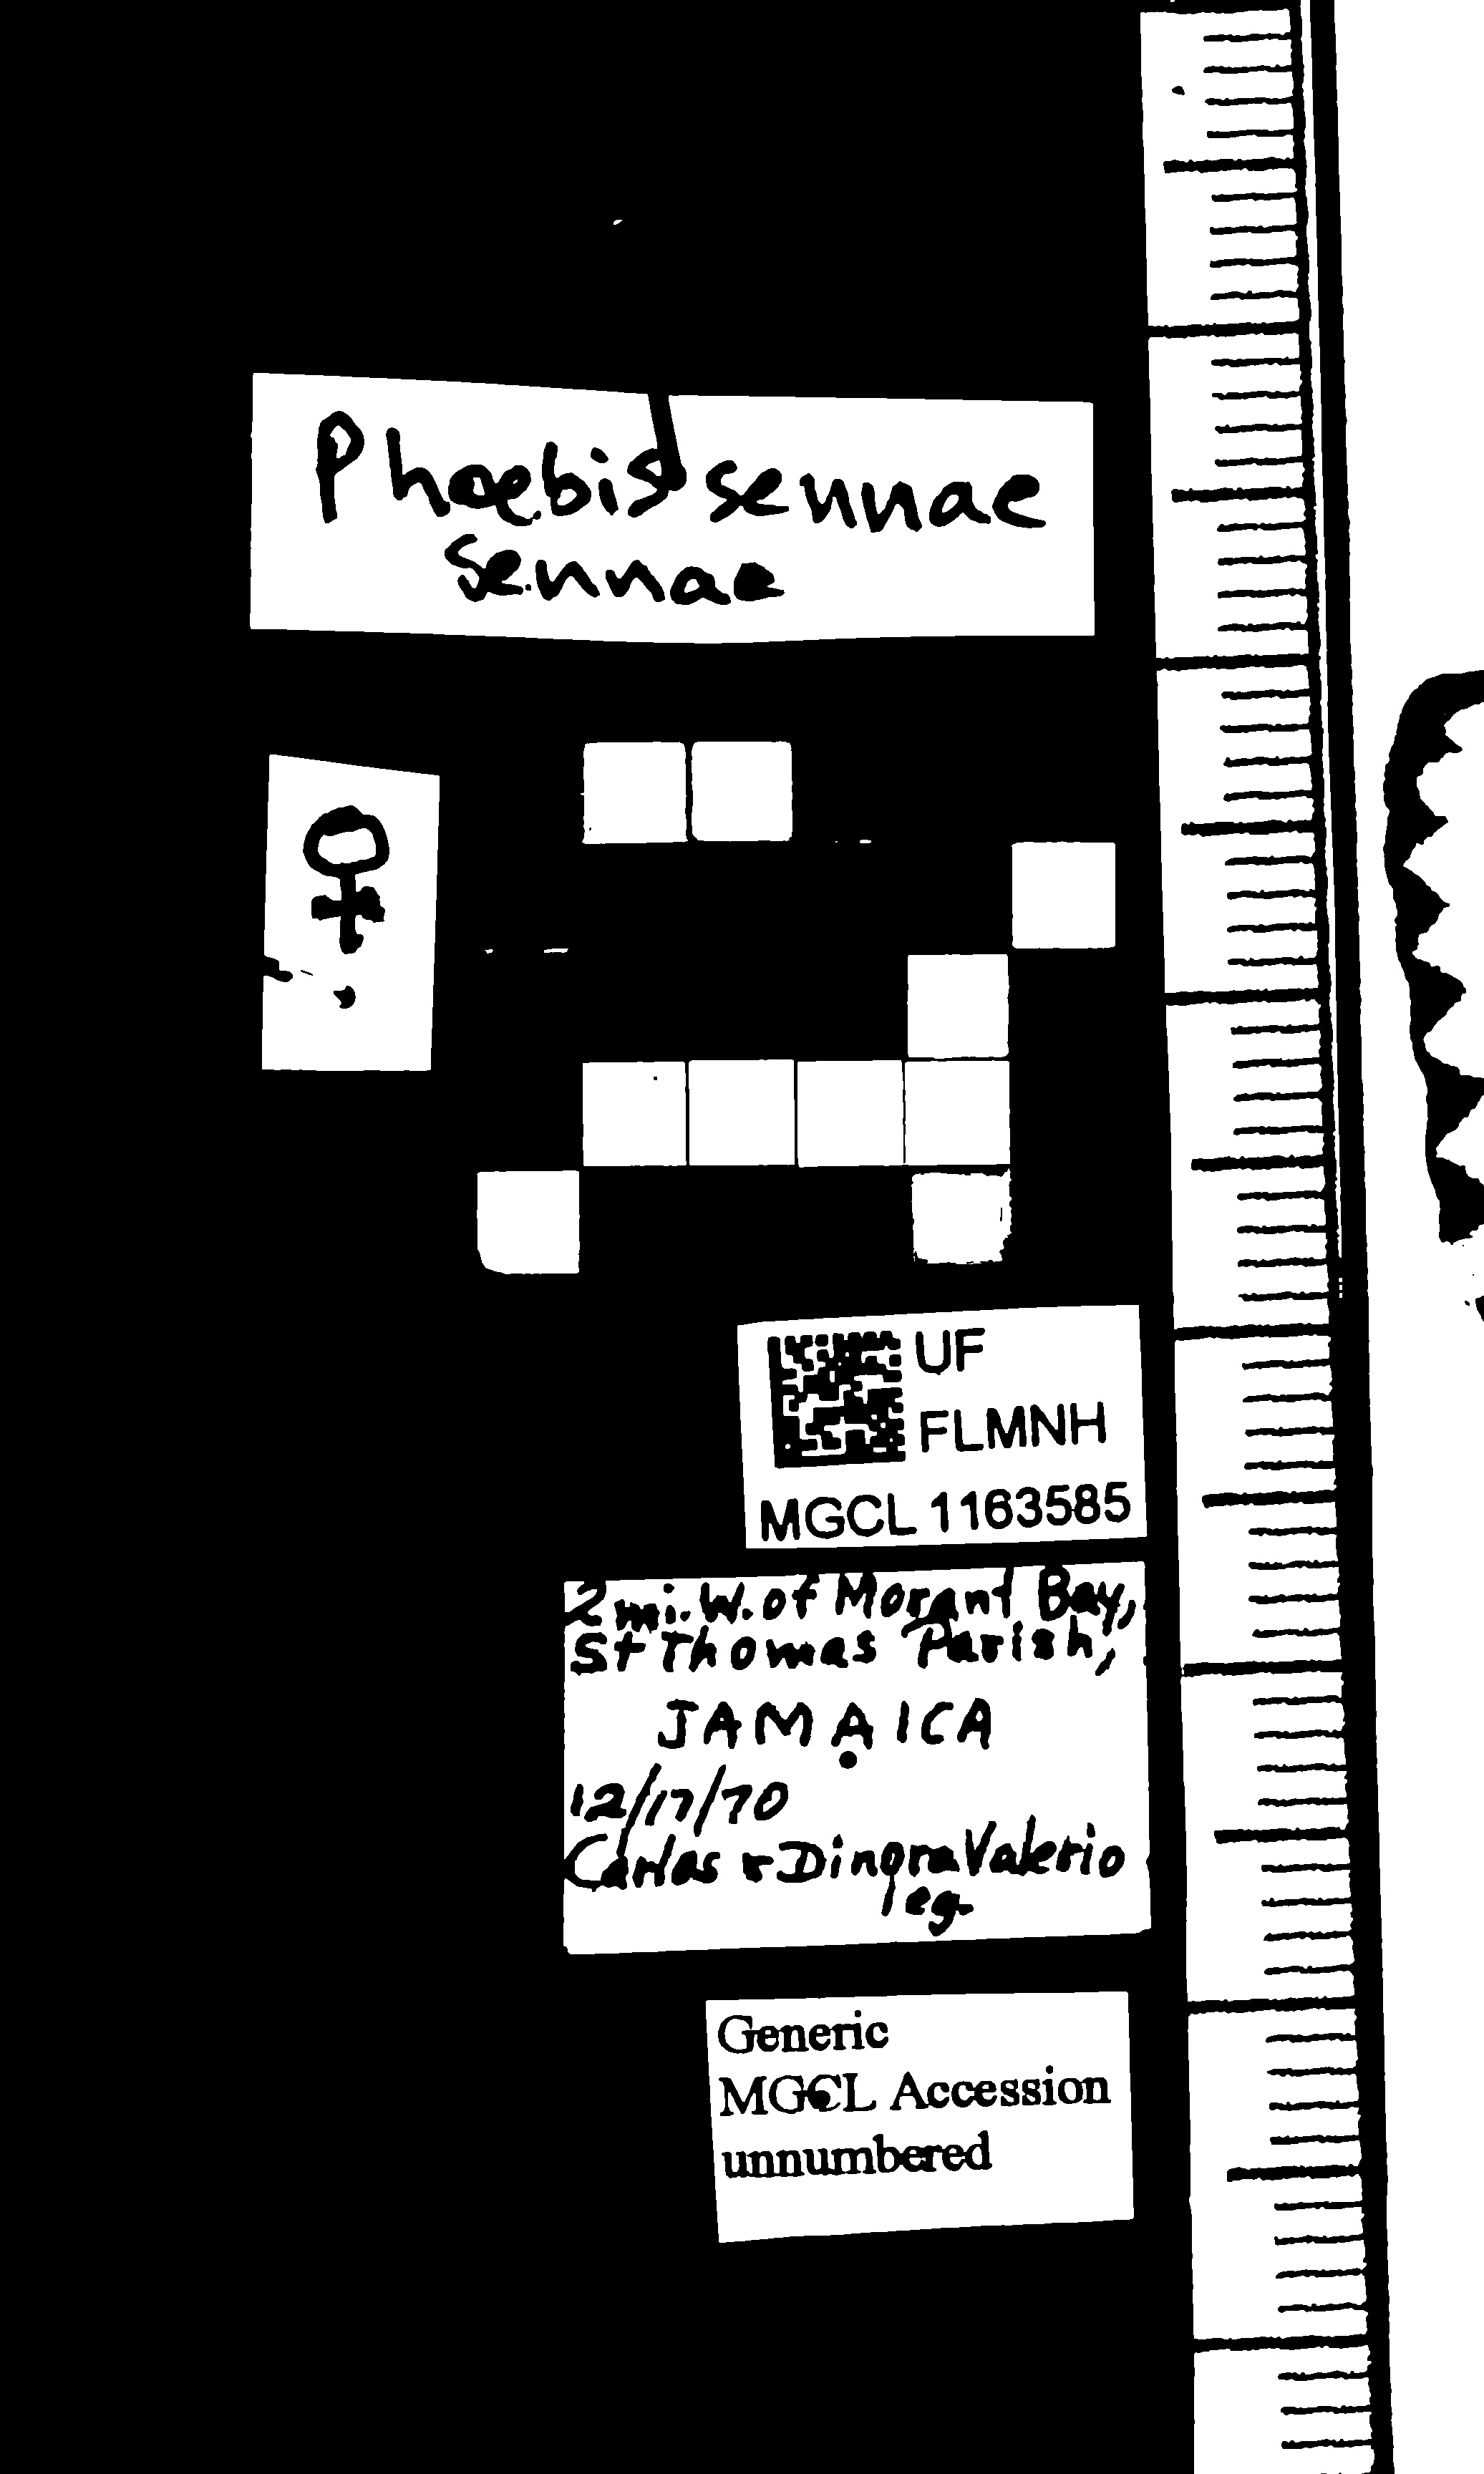 Phoebis sennae
sennae
♀
UF
FLMNH
MGCL 1163585
2 mi. W. of Morant Bay,
St Thomas Parish,
JAMAICA
12/17/70
Carlos & Dinora Valerio
leg.
Generic
MGCL Accession
unnumbered